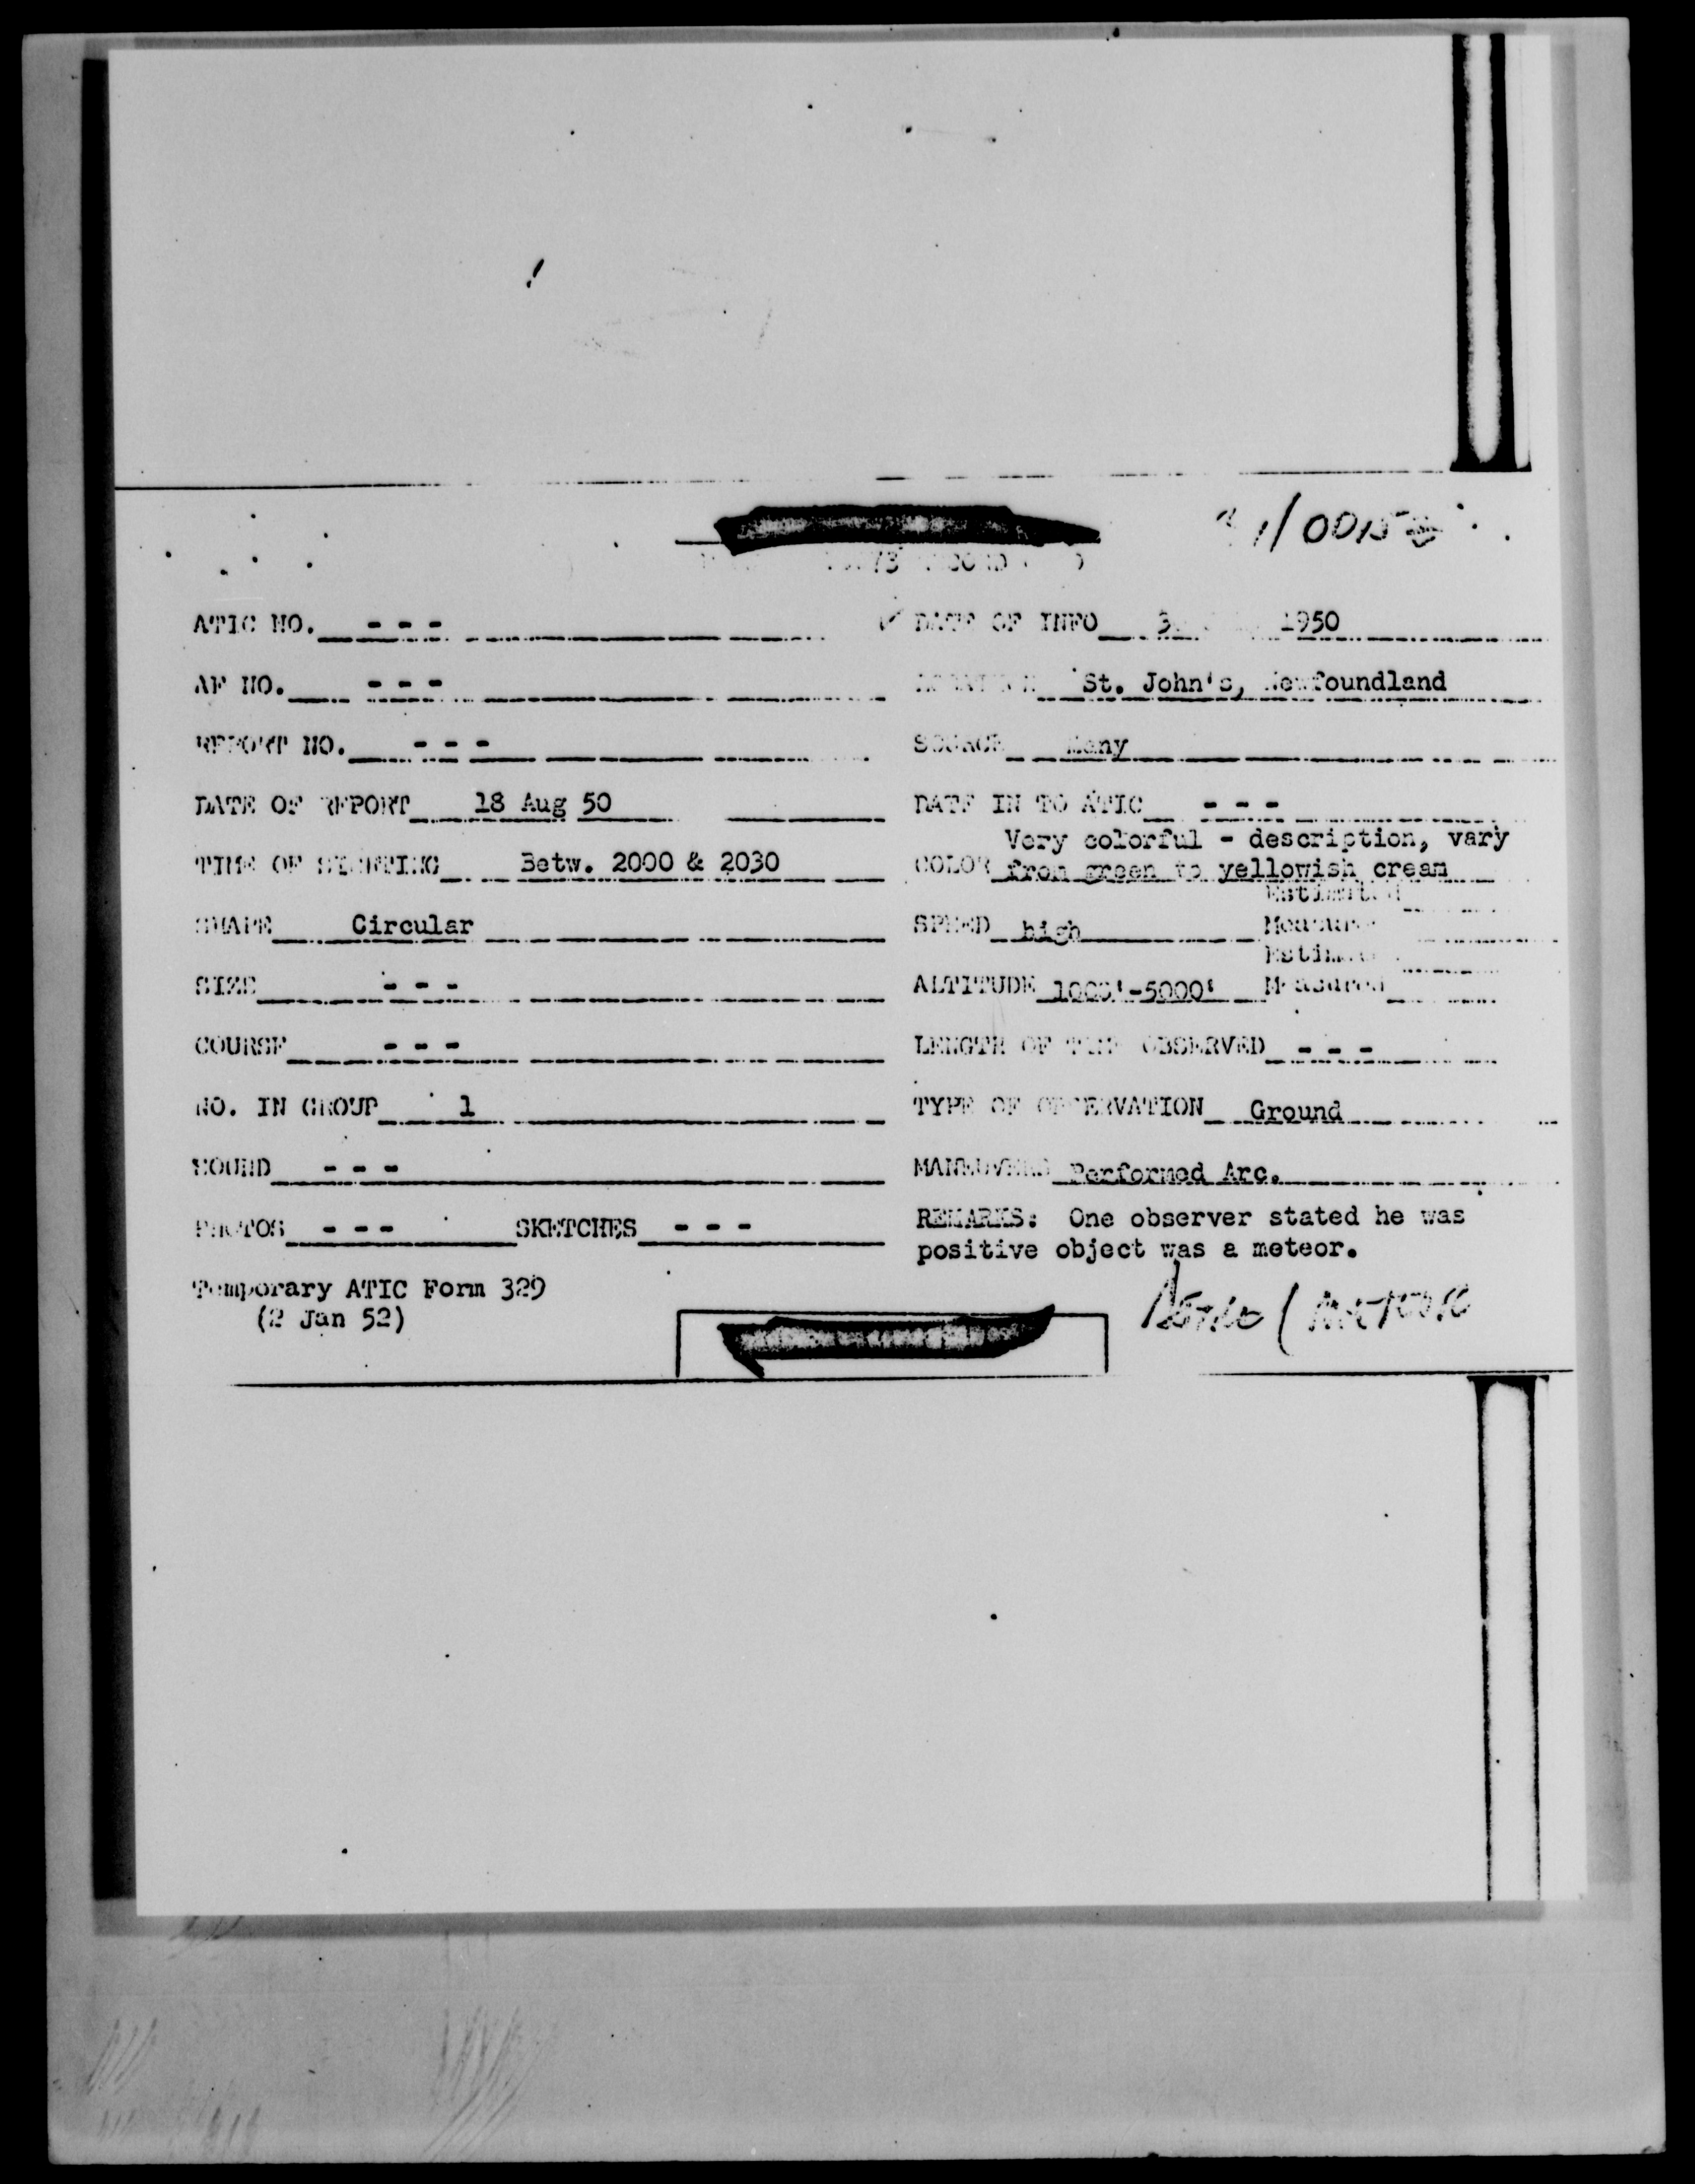 ATIC NO. - - -
DATE OF INFO 1950
AF NO. - - -
St. John's, Newfoundland
REPORT NO. - - -
SOURCE Many
DATE OF REPORT 18 Aug 50
DATE IN TO ATIC - - -
Very colorful - description, vary
TIME OF SIGHTING Betw. 2000 & 2030
COLOR from green to yellowish cream
Estimated
SHAPE Circular
SPEED high Measured
Estimated
SIZE - - -
ALTITUDE 1000'-5000' Measured
COURSE - - -
LENGTH OF TIME OBSERVED - - -
NO. IN GROUP 1
TYPE OF OBSERVATION Ground
SOUND - - -
MANEUVERS Performed Arc.
PHOTOS - - - SKETCHES - - -
REMARKS: One observer stated he was
positive object was a meteor.
Temporary ATIC Form 329
(2 Jan 52)